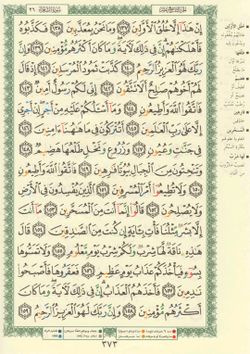 إِنْ هَٰذَآ إِلَّا خُلُقُ ٱلْأَوَّلِينَ ١٣٧ وَمَا نَحْنُ بِمُعَذَّبِينَ ١٣٨ فَكَذَّبُوهُ
فَأَهْلَكْنَٰهُمْ إِنَّ فِى ذَٰلِكَ لَءَايَةً وَمَا كَانَ أَكْثَرُهُم مُّؤْمِنِينَ ١٣٩ وَإِنَّ
رَبَّكَ لَهُوَ ٱلْعَزِيزُ ٱلرَّحِيمُ ١٤٠ كَذَّبَتْ ثَمُودُ ٱلْمُرْسَلِينَ ١٤١ إِذْ قَالَ
لَهُمْ أَخُوهُمْ صَٰلِحٌ أَلَا تَتَّقُونَ ١٤٢ إِنِّى لَكُمْ رَسُولٌ أَمِينٌ ١٤٣
فَٱتَّقُوا۟ ٱللَّهَ وَأَطِيعُونِ ١٤٤ وَمَآ أَسْـَٔلُكُمْ عَلَيْهِ مِنْ أَجْرٍ إِنْ أَجْرِىَ
إِلَّا عَلَىٰ رَبِّ ٱلْعَٰلَمِينَ ١٤٥ أَتُتْرَكُونَ فِى مَا هَٰهُنَآ ءَامِنِينَ ١٤٦
فِى جَنَّٰتٍ وَعُيُونٍ ١٤٧ وَزُرُوعٍ وَنَخْلٍ طَلْعُهَا هَضِيمٌ ١٤٨
وَتَنْحِتُونَ مِنَ ٱلْجِبَالِ بُيُوتًا فَٰرِهِينَ ١٤٩ فَٱتَّقُوا۟ ٱللَّهَ وَأَطِيعُونِ ١٥٠
وَلَا تُطِيعُوٓا۟ أَمْرَ ٱلْمُسْرِفِينَ ١٥١ ٱلَّذِينَ يُفْسِدُونَ فِى ٱلْأَرْضِ
وَلَا يُصْلِحُونَ ١٥٢ قَالُوٓا۟ إِنَّمَآ أَنتَ مِنَ ٱلْمُسَحَّرِينَ ١٥٣ مَآ أَنتَ
إِلَّا بَشَرٌ مِّثْلُنَا فَأْتِ بِـَٔايَةٍ إِن كُنتَ مِنَ ٱلصَّٰدِقِينَ ١٥٤ قَالَ
هَٰذِهِۦ نَاقَةٌ لَّهَا شِرْبٌ وَلَكُمْ شِرْبُ يَوْمٍ مَّعْلُومٍ ١٥٥ وَلَا تَمَسُّوهَا
بِسُوٓءٍ فَيَأْخُذَكُمْ عَذَابُ يَوْمٍ عَظِيمٍ ١٥٦ فَعَقَرُوهَا فَأَصْبَحُوا۟
نَٰدِمِينَ ١٥٧ فَأَخَذَهُمُ ٱلْعَذَابُ إِنَّ فِى ذَٰلِكَ لَءَايَةً وَمَا كَانَ
أَكْثَرُهُم مُّؤْمِنِينَ ١٥٨ وَإِنَّ رَبَّكَ لَهُوَ ٱلْعَزِيزُ ٱلرَّحِيمُ ١٥٩
٣٧٣